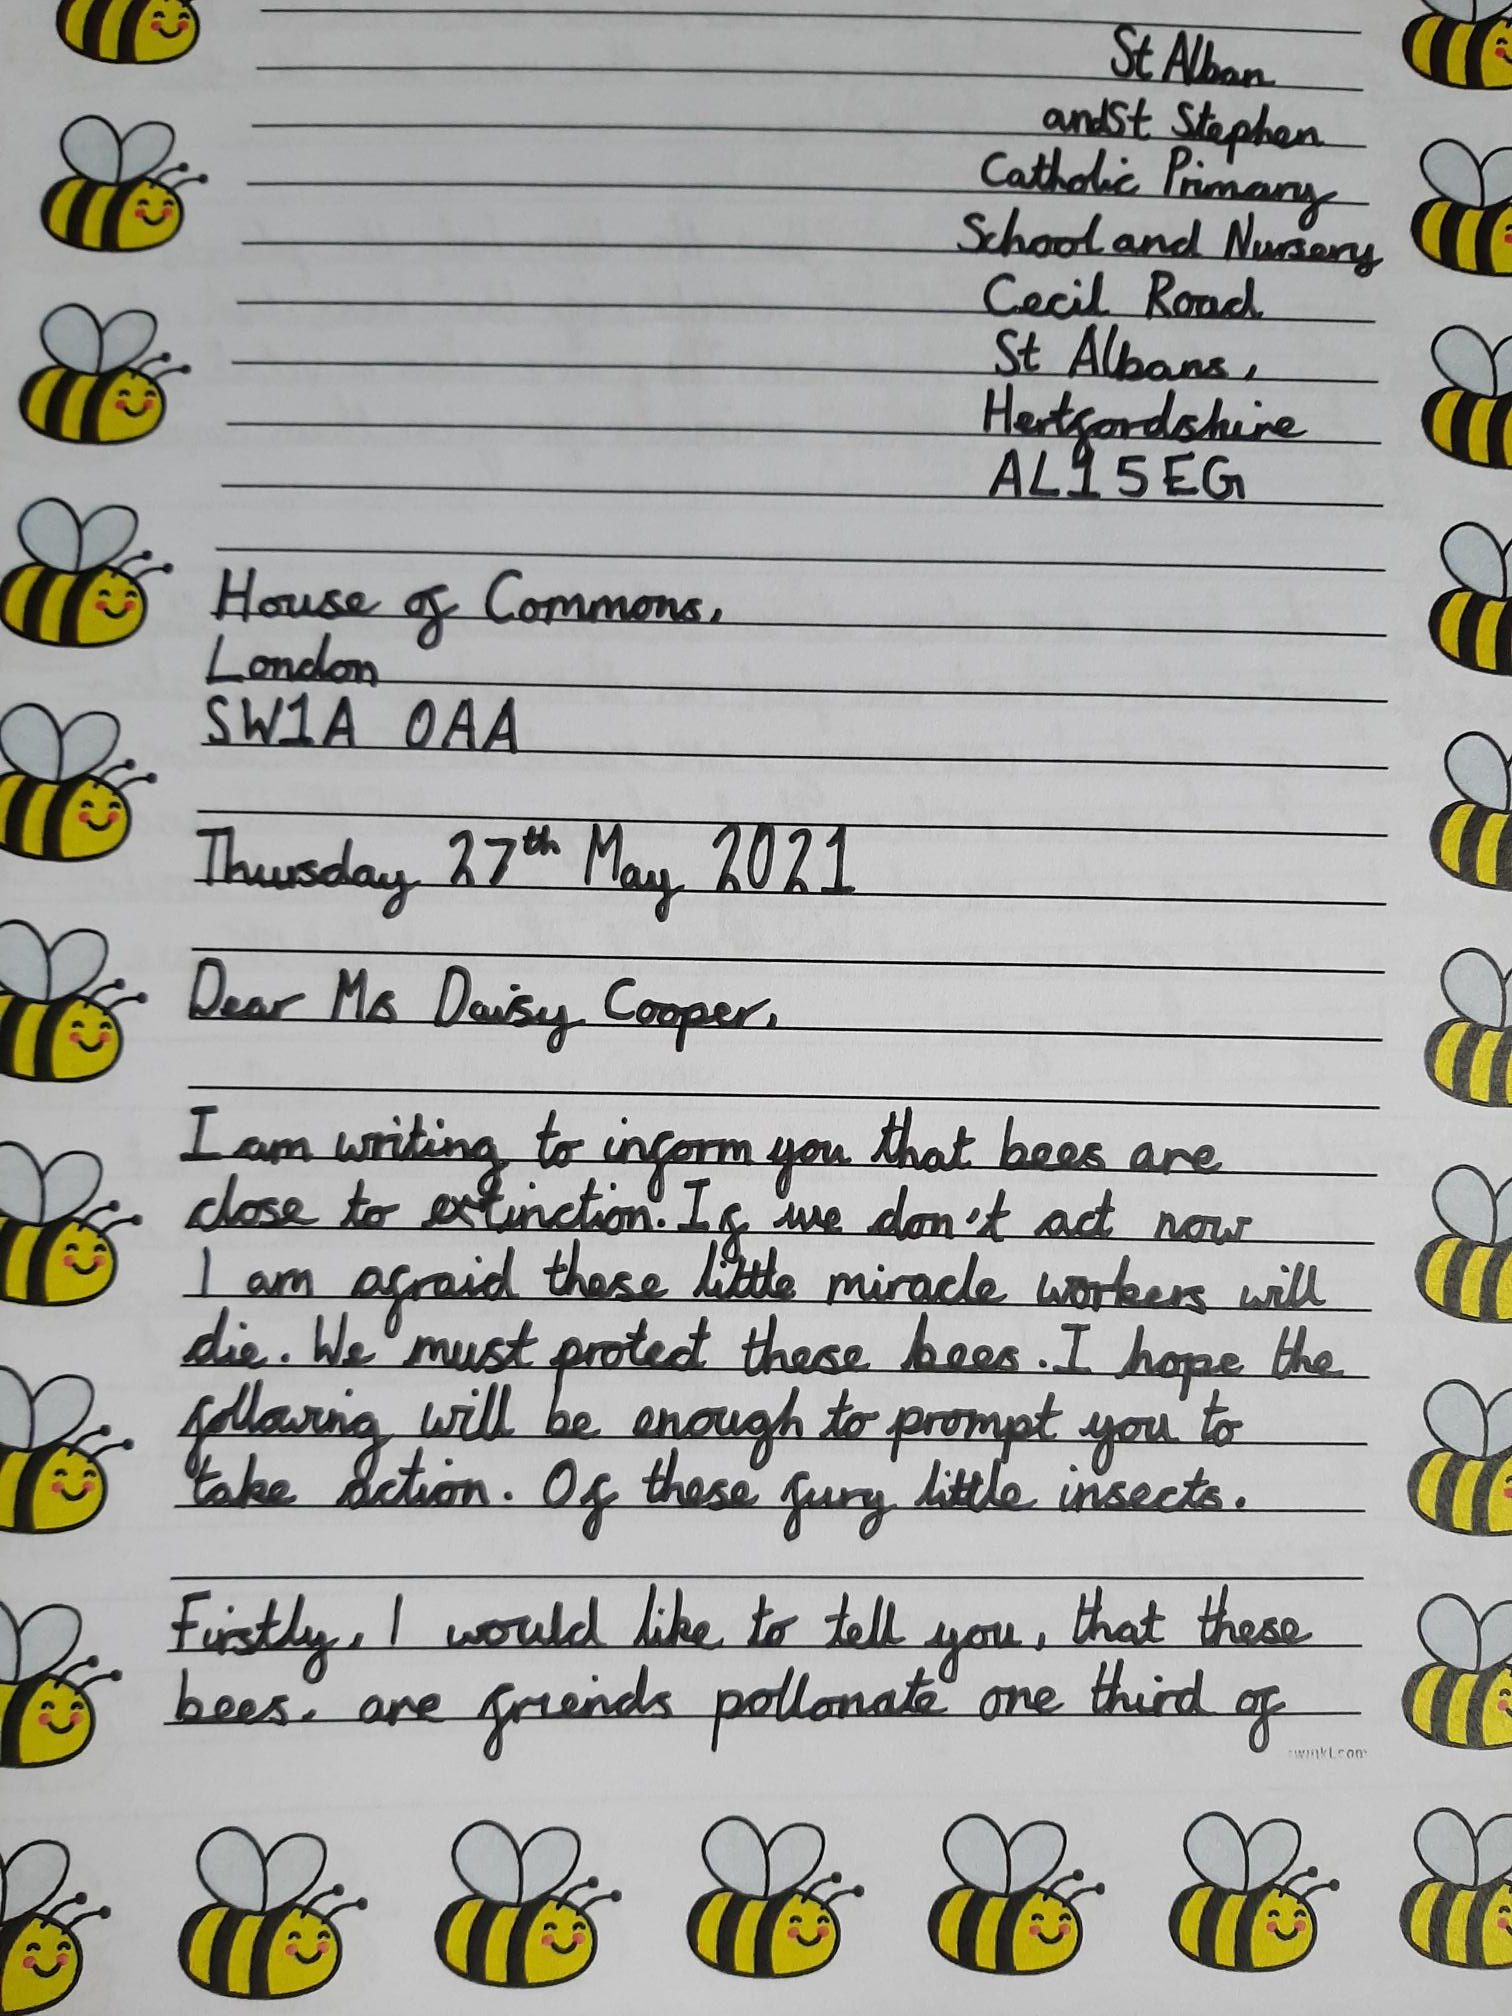 St Alban
and St Stephen
Catholic Primary
School and Nursery
Cecil Road
St Albans,
Hertfordshire
AL1 5EG
House of Commons,
London
SW1A 0AA
Thursday 27th May 2021
Dear Ms Daisy Cooper,
I am writing to inform you that bees are
close to extinction. If we don't act now
I am afraid these little miracle workers will
die. We must protect these bees. I hope the
following will be enough to prompt you to
take action. Of these fury little insects.
Firstly, I would like to tell you, that these
bees. are friends pollonate one third of
twinkl.com